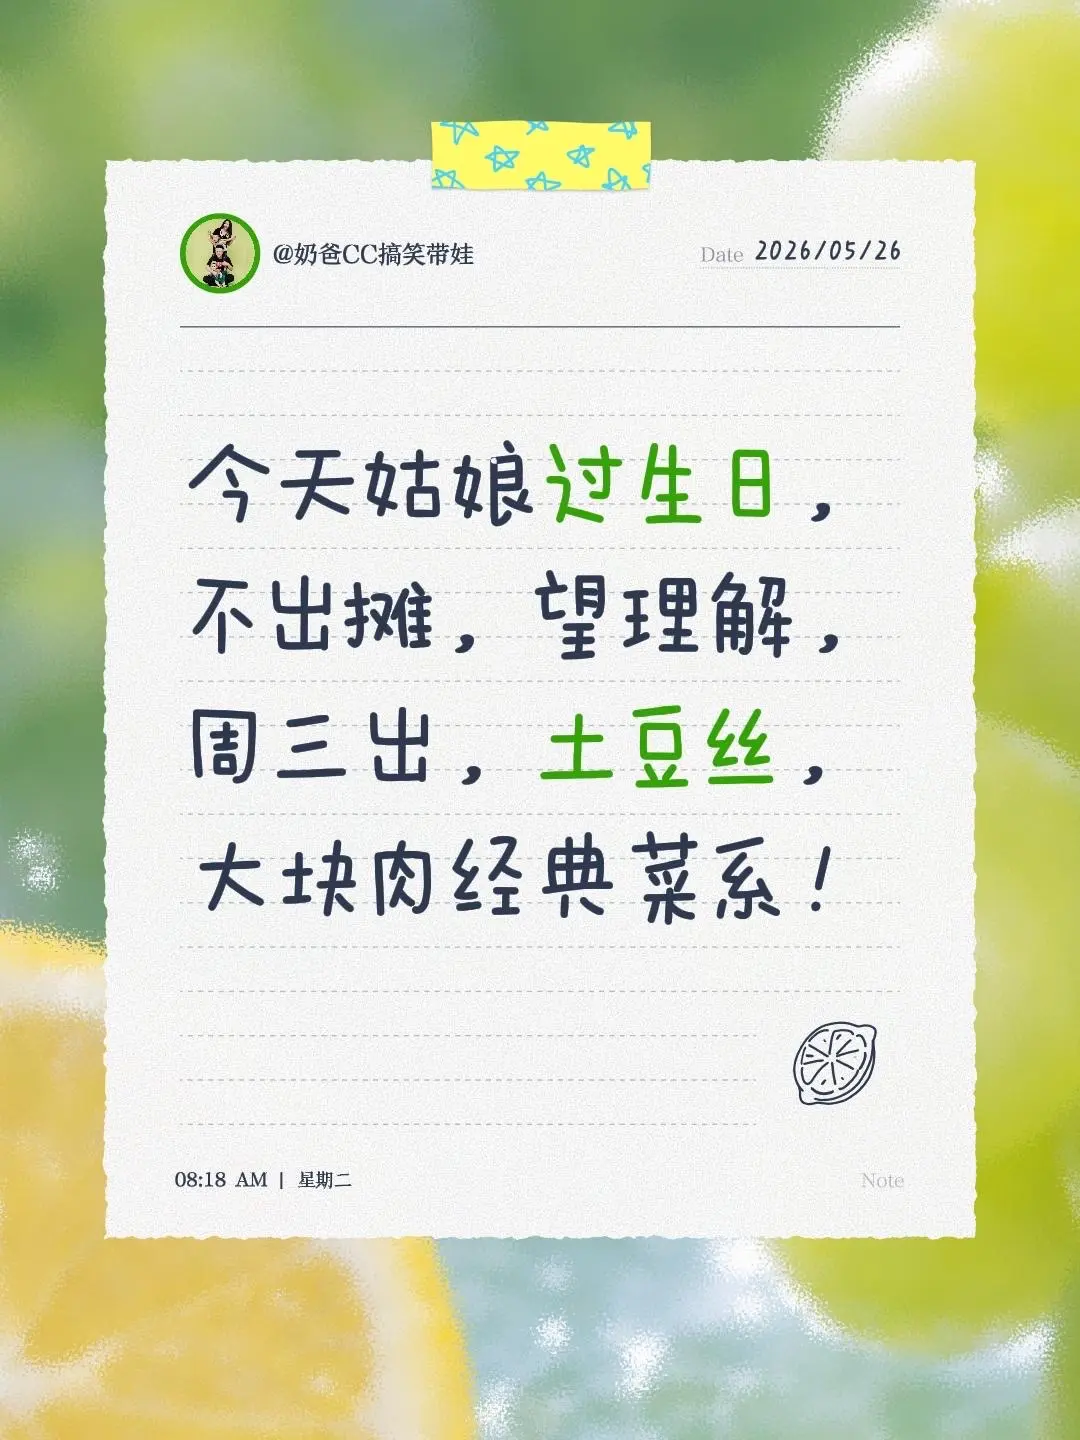 @奶爸CC搞笑带娃
Date 2026/05/26
今天姑娘过生日，
不出摊，望理解，
周三出，土豆丝，
大块肉经典菜系！
08:18 AM | 星期二
Note